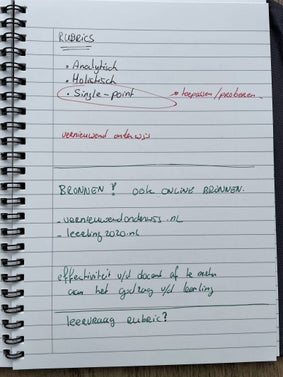 RUBRICS
• Analytisch
• Holistisch
• Single-point → toepassen/proberen
vernieuwend onderwijs
BRONNEN? OOK ONLINE BRONNEN.
- vernieuwendonderwijs.nl
- leerling2020.nl
effectiviteit v/d docent af te meten
aan het gedrag v/d leerling
leervraag rubric?